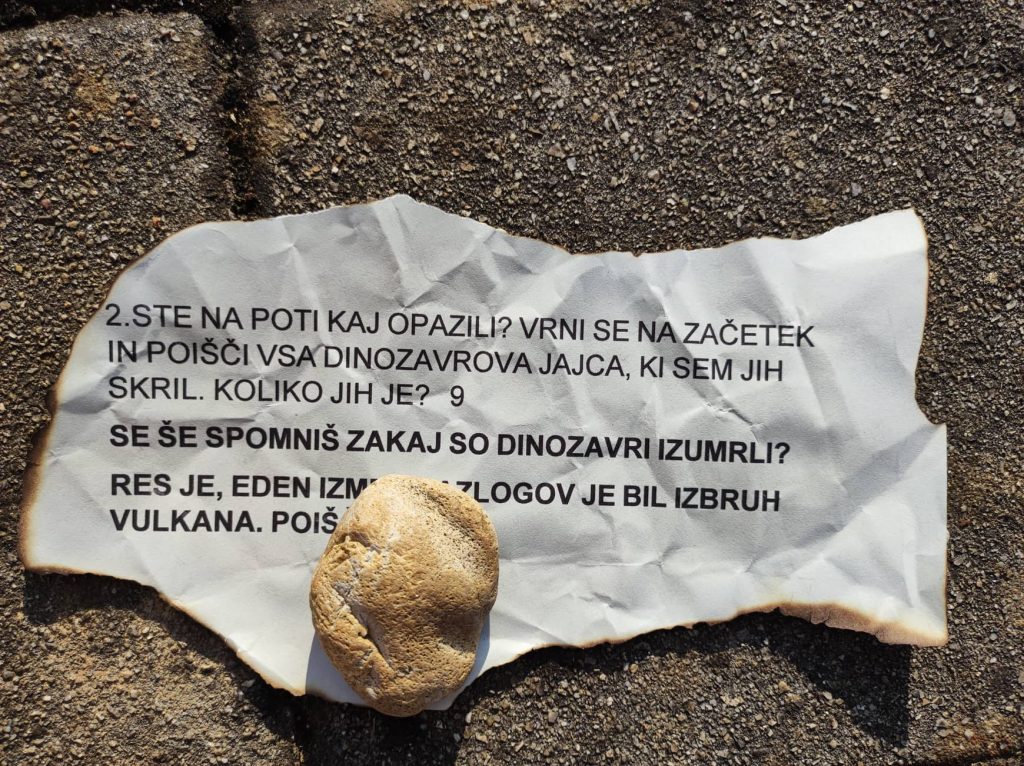 2.STE NA POTI KAJ OPAZILI? VRNI SE NA ZAČETEK
IN POIŠČI VSA DINOZAVROVA JAJCA, KI SEM JIH
SKRIL. KOLIKO JIH JE? 9
SE ŠE SPOMNIŠ ZAKAJ SO DINOZAVRI IZUMRLI?
RES JE, EDEN JE BIL IZBRUH
VULKANA.